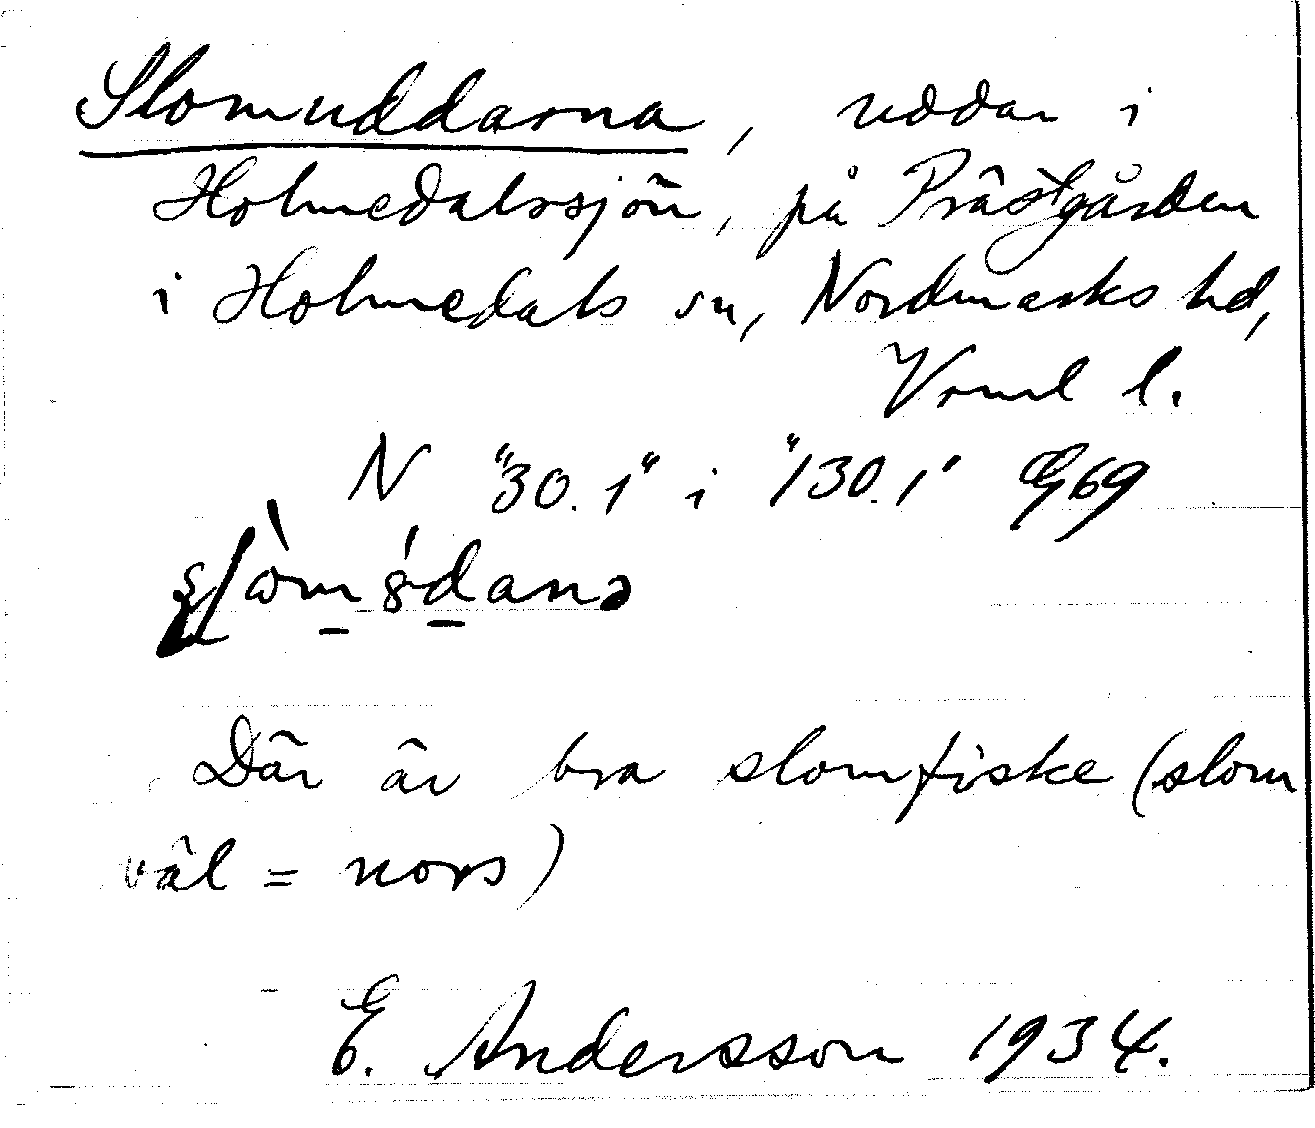 Slomuddarna, uddar i
Holmedalssjön, på Prästgården
i Holmedals sn, Nordmarks hd,
Vrml l.
N "30.1" i "130.1" Eg 69
Där är bra slomfiske (slom
väl = nors)
E. Andersson 1934.